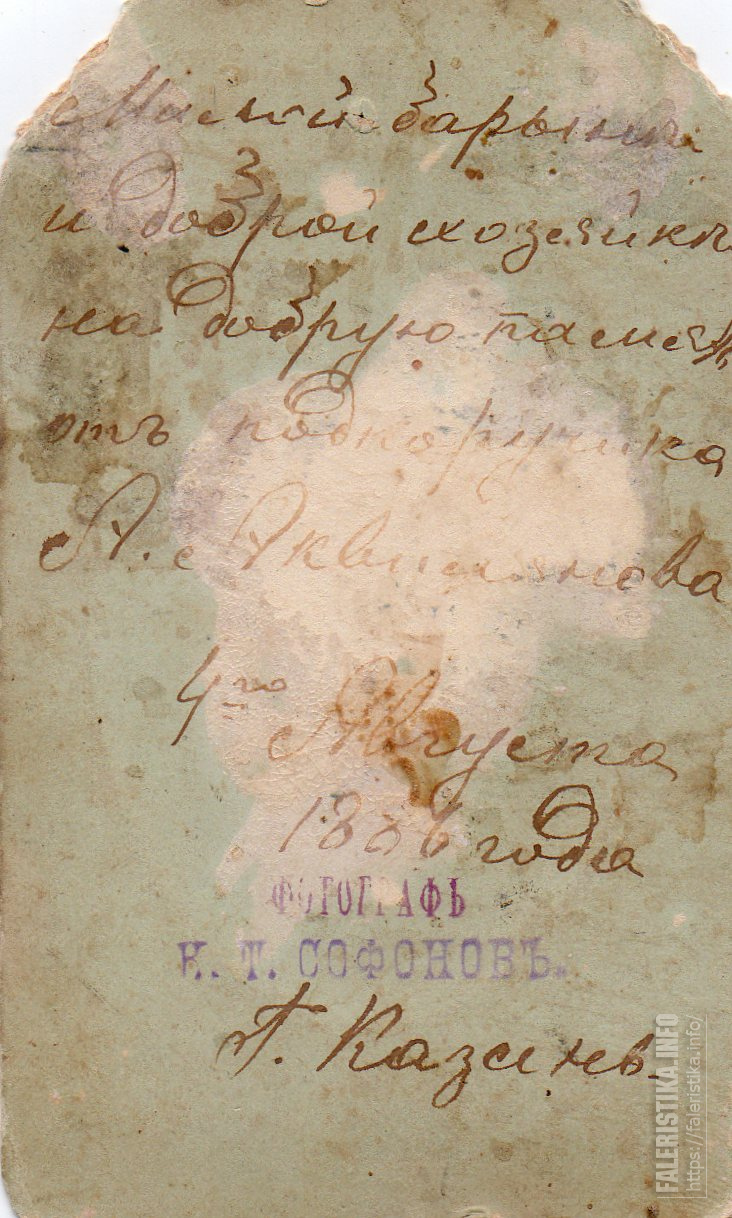 Милой барыни
и доброй хозяйкѣ
на добрую память
отъ подпоручика
А.
4го Августа
1886 года
ФОТОГРАФЪ
К. Т. СОФОНОВЪ.
Г. Казань
FALERISTIKA.INFO
https://faleristika.info/